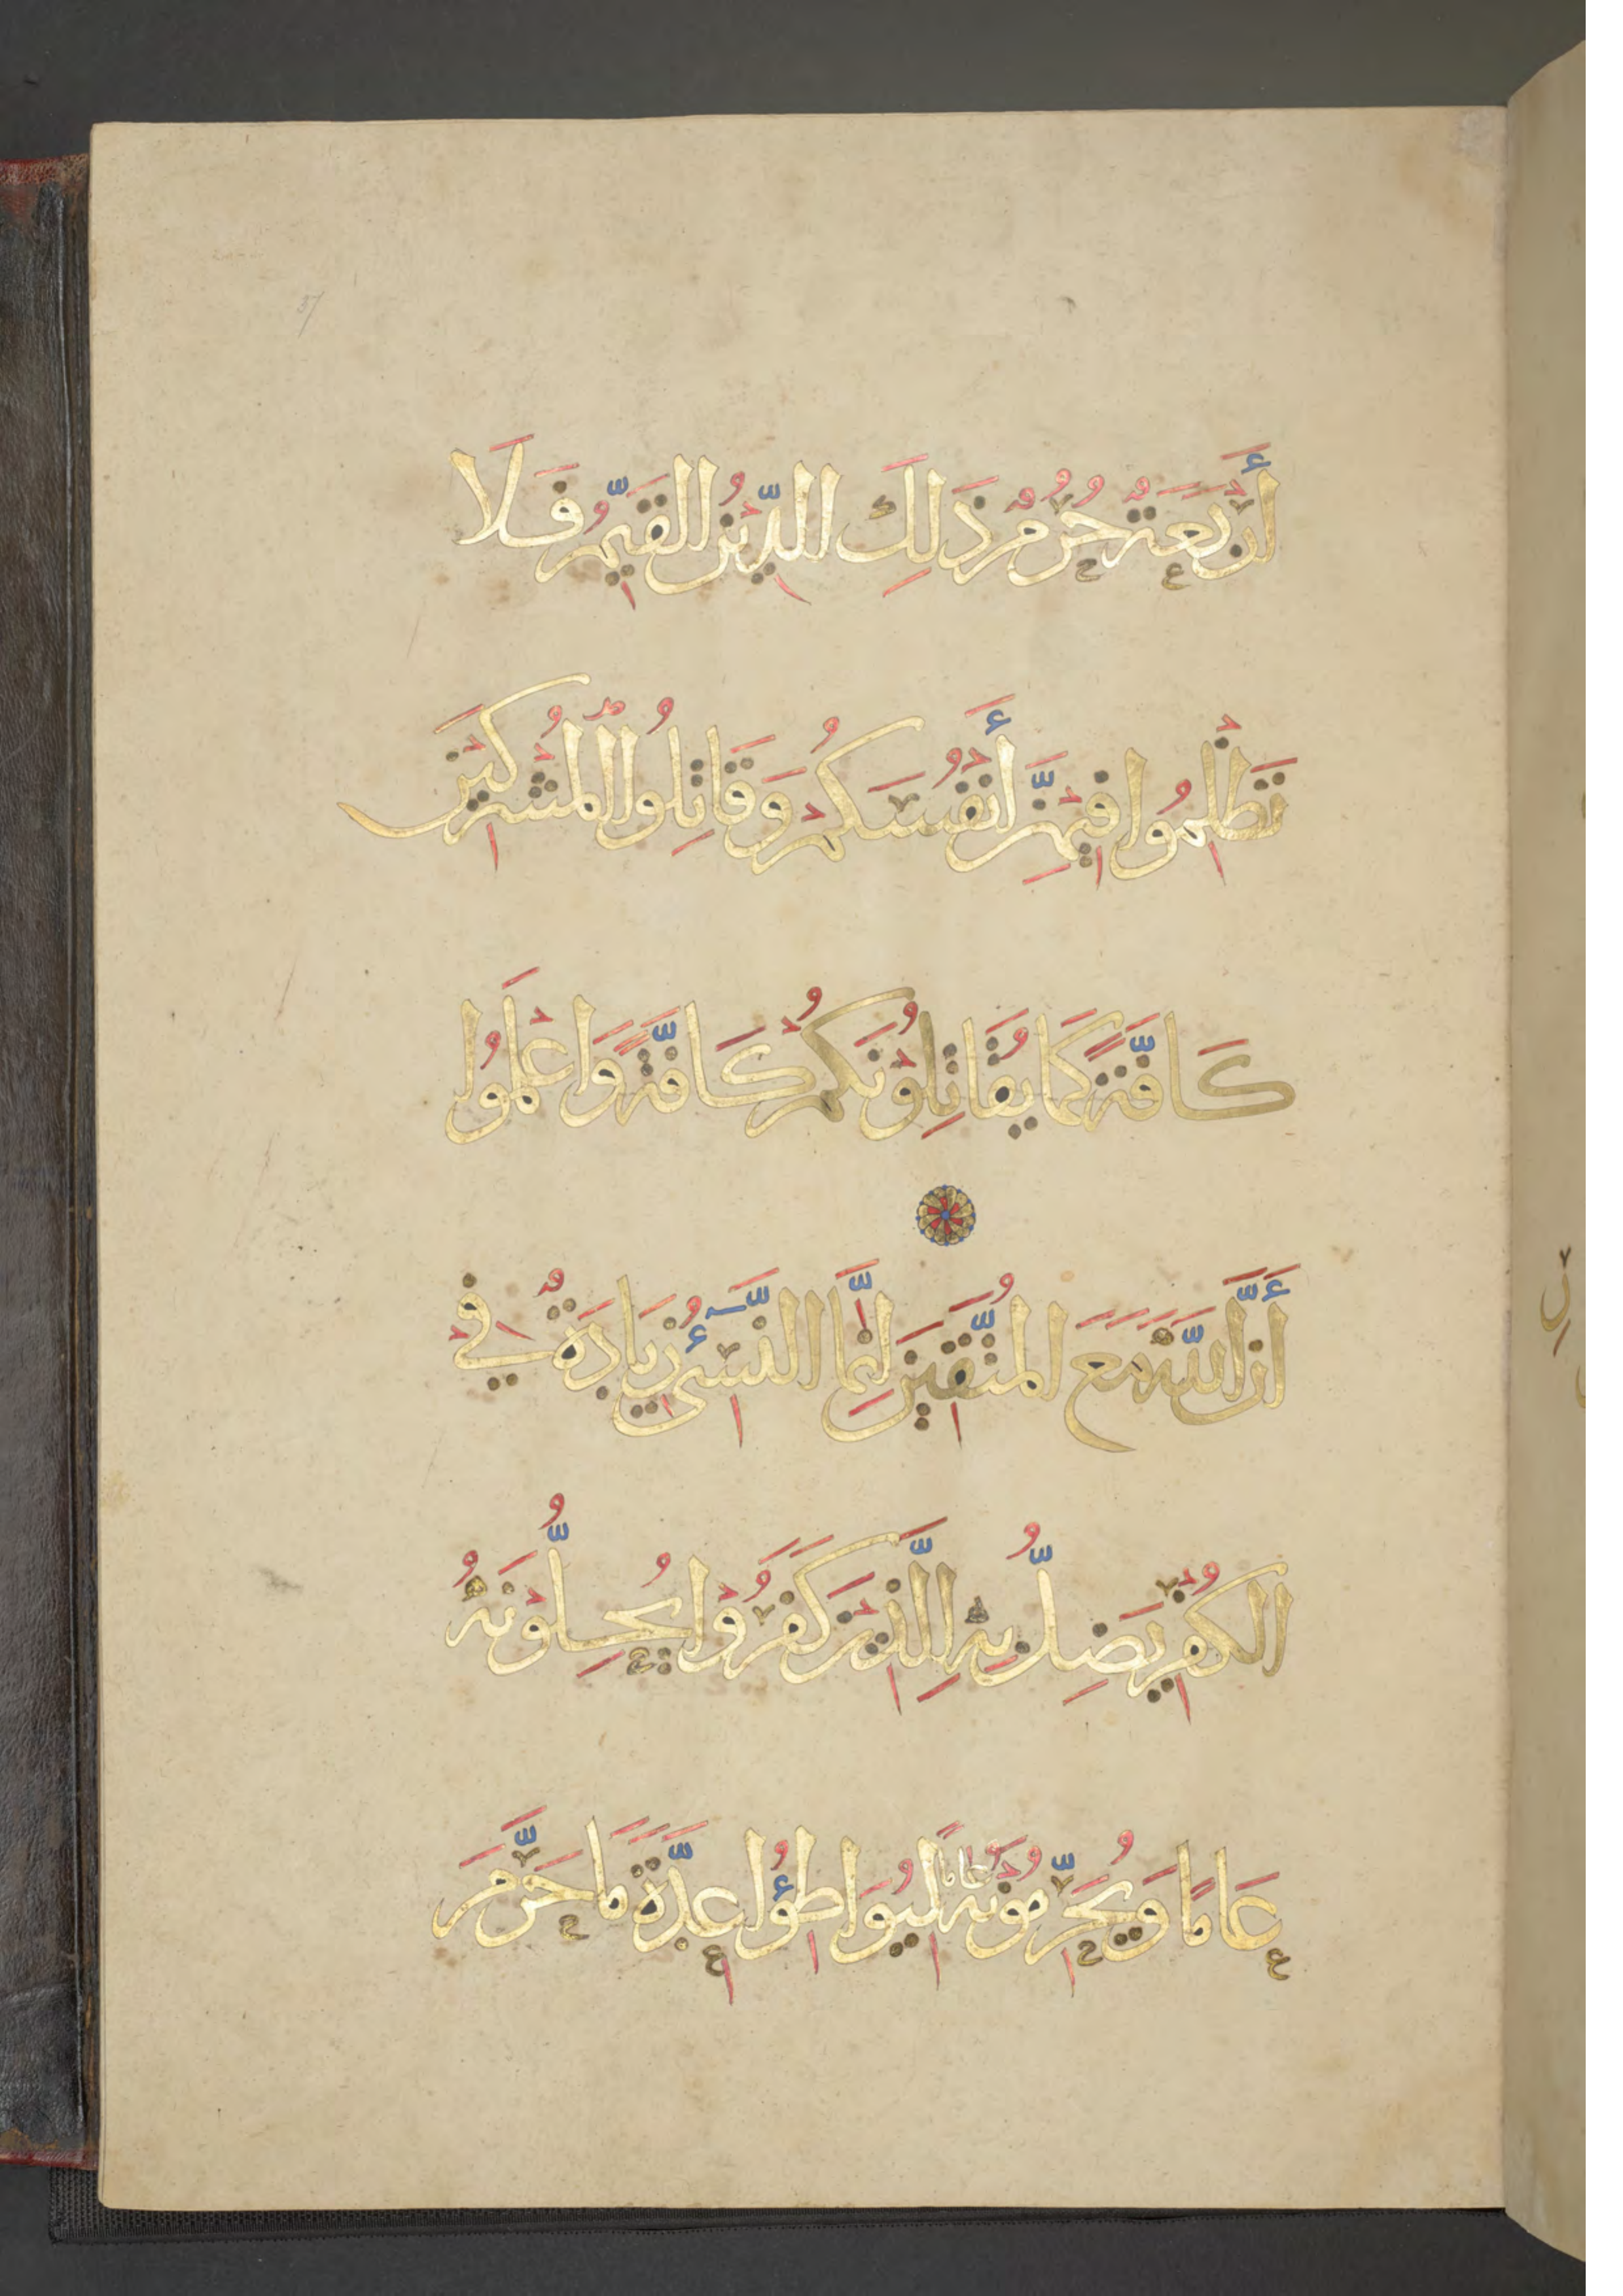 أَرْبَعَةٌ حُرُمٌ ذَلِكَ الدِّينُ الْقَيِّمُ فَلَا
تَظْلِمُوا فِيهِنَّ أَنْفُسَكُمْ وَقَاتِلُوا الْمُشْرِكِينَ
كَافَّةً كَمَا يُقَاتِلُونَكُمْ كَافَّةً وَاعْلَمُوا
أَنَّ اللَّهَ مَعَ الْمُتَّقِينَ إِنَّمَا النَّسِيءُ زِيَادَةٌ فِي
الْكُفْرِ يَضِلُّ بِهِ الَّذِينَ كَفَرُوا يُحِلُّونَهُ
عَامًا وَيُحَرِّمُونَهُ عَامًا لِيُوَاطِئُوا عِدَّةَ مَا حَرَّمَ